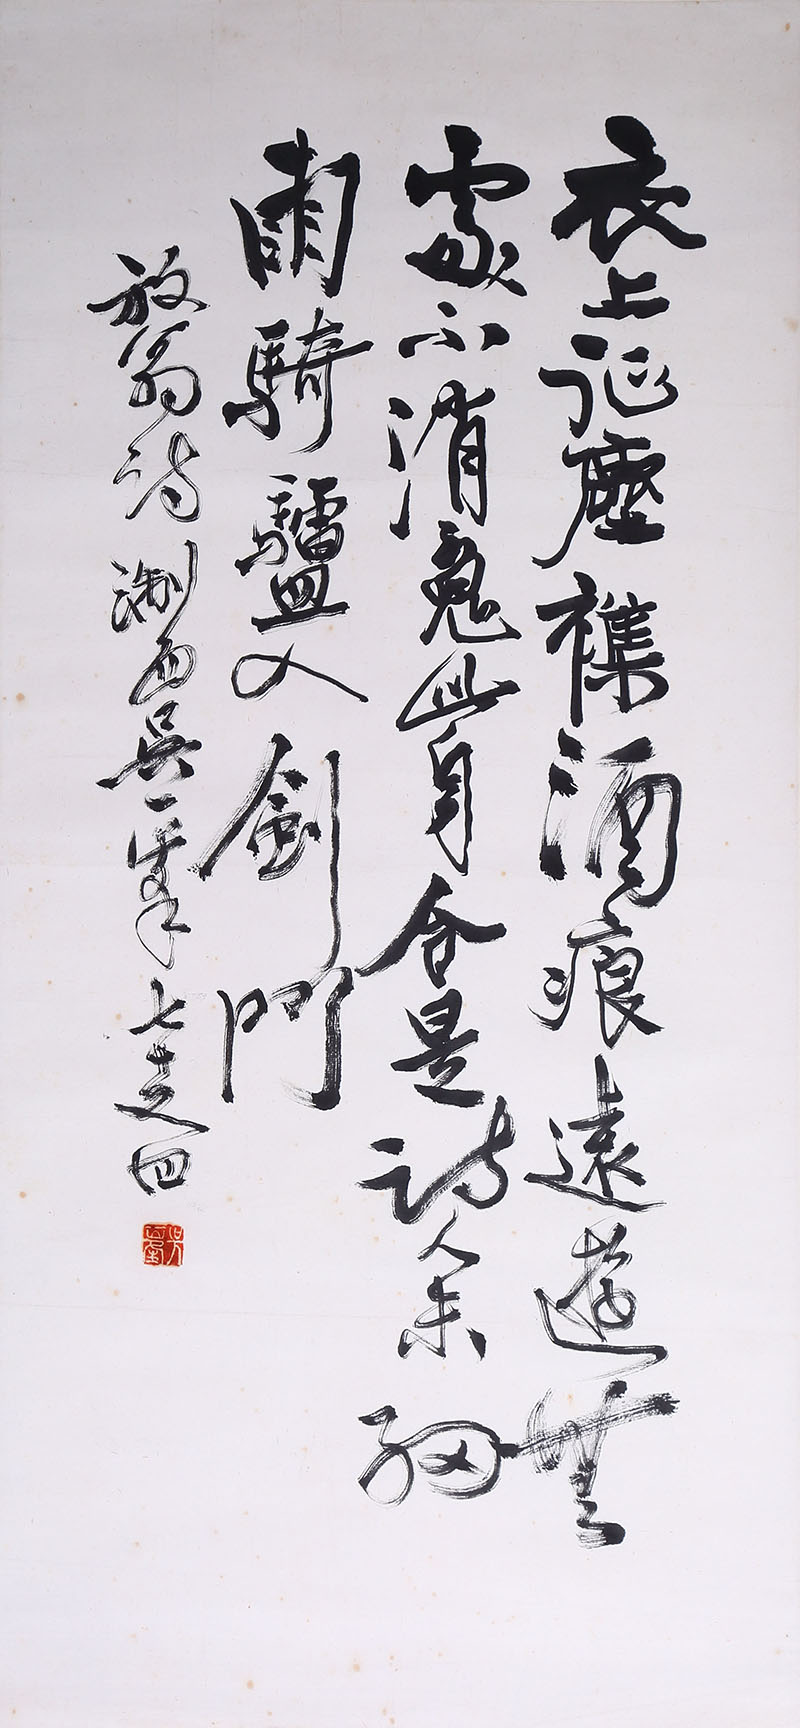 衣上征塵襍酒痕遠遊無
處不消魂此身合是詩人未細
雨騎驢入劍門
放翁詩淛西吳一峯七十又四